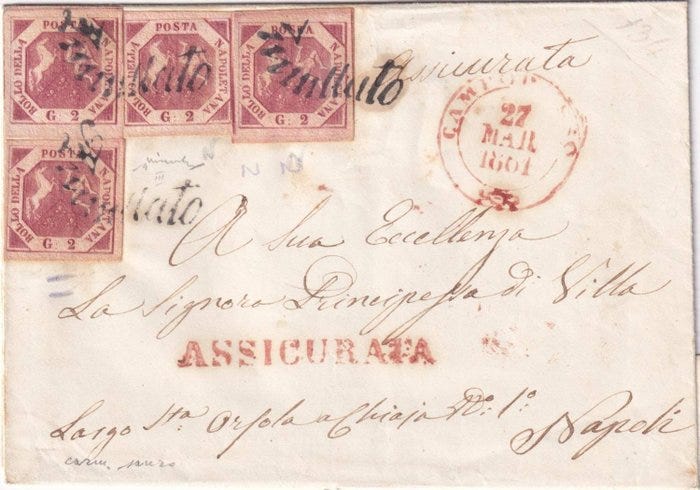 POSTA
BOLLO DELLA
NAPOLETANA
G. 2
POSTA
BOLLO DELLA
NAPOLETANA
G. 2
POSTA
BOLLO DELLA
NAPOLETANA
G. 2
Annullato
Annullato
Assicurata
27
MAR
1861
POSTA
BOLLO DELLA
NAPOLETANA
G. 2
Annullato
N
N N
A Sua Eccellenza
La Signora Principessa di Villa
ASSICURATA
Largo Sta. Orsola a Chiaja No. 1o.
Napoli